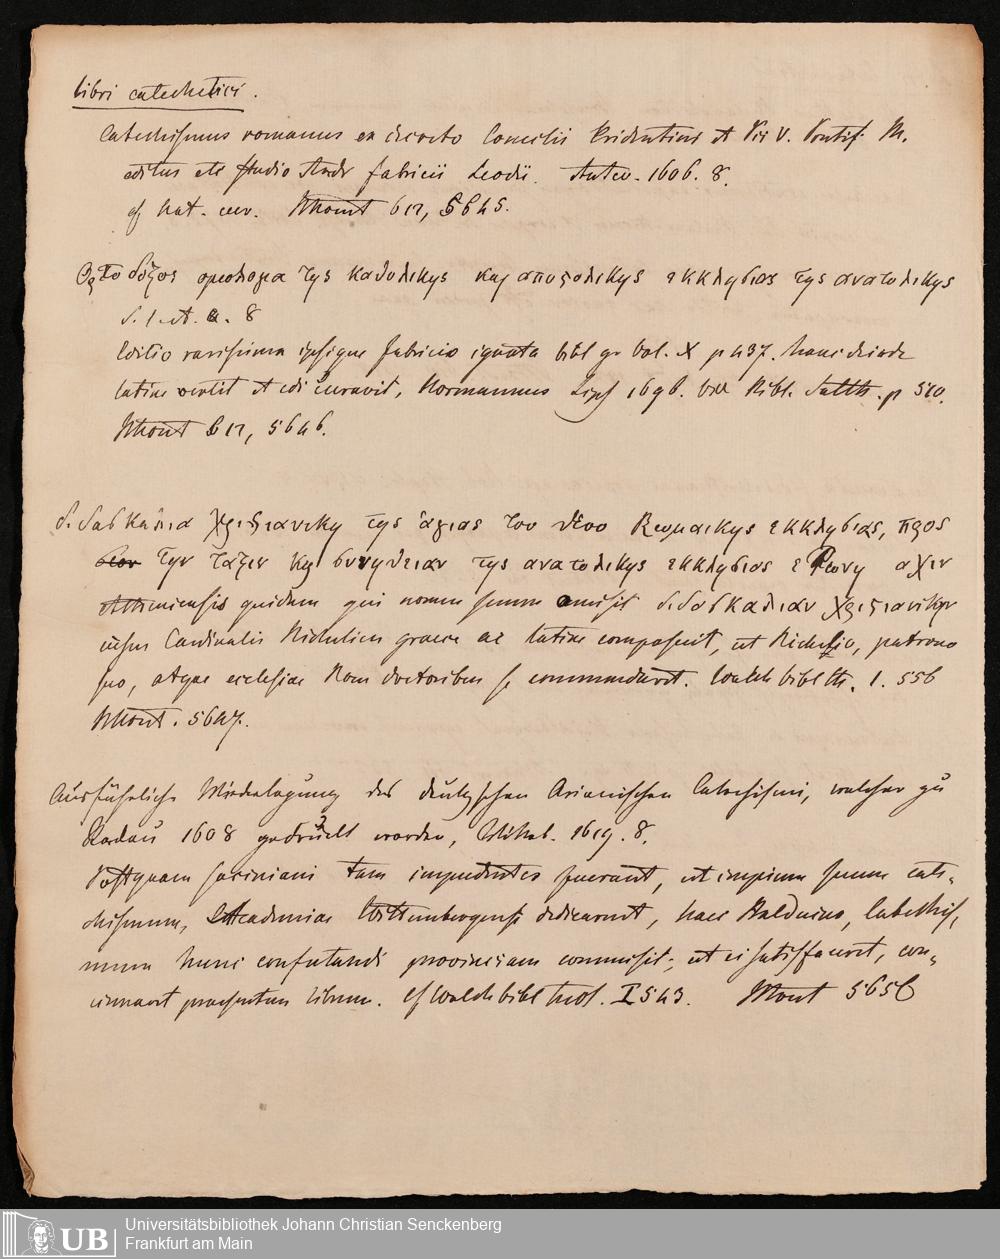 libri catechetici.
Catechismus romanus ex decreto Concilii Tridentini et Pii V. Pontif. M.
editus etc studio Andr Fabricii Leodii. Antw. 1606. 8.
cf nat. 612, 5645.
Ορτοδοξος ομολογια της καθολικης και αποστολικης εκκλησιας της ανατολικης
s. l. et a. 8
Editio rarissima ipsique Fabricio ignota bibl gr Vol. X p 437. hanc deinde
latine vertit et edi curavit, Normannus Lips 1696. Bibl. Salth. p 510.
612, 5646.
διδασκαλια χριστιανικη της άγιας του θεου Ρωμαικης εκκλησιας, προς
την ταξιν και συνηθειαν της ανατολικης εκκλησιας
Atheniensis quidam qui nomen suum omisit διδασκαλιαν χριστιανικην
iussu Cardinalis Richelieu graece ac latine composuit, ut Richelio, patrono
suo, atque ecclesiae Rom doctoribus se commendaret. Walch bibl th. 1. 556
5647.
Ausführliche Wiederlegung des deutzschen Arianischen Catechismi, welcher zu
Rackau 1608 gedruckt worden, 1619. 8.
Postquam Sociniani tam impudentes fuerant, ut impium suum cate-
chismum, Academiae Wittembergensi dedicarent, haec Balduino, catechis-
mum hunc confutandi provinciam commisit; ut ei satisfaceret, con-
cinnavit praesentem librum. cf Walch bibl theol. I 543. 5656
Universitätsbibliothek Johann Christian Senckenberg
Frankfurt am Main
UB